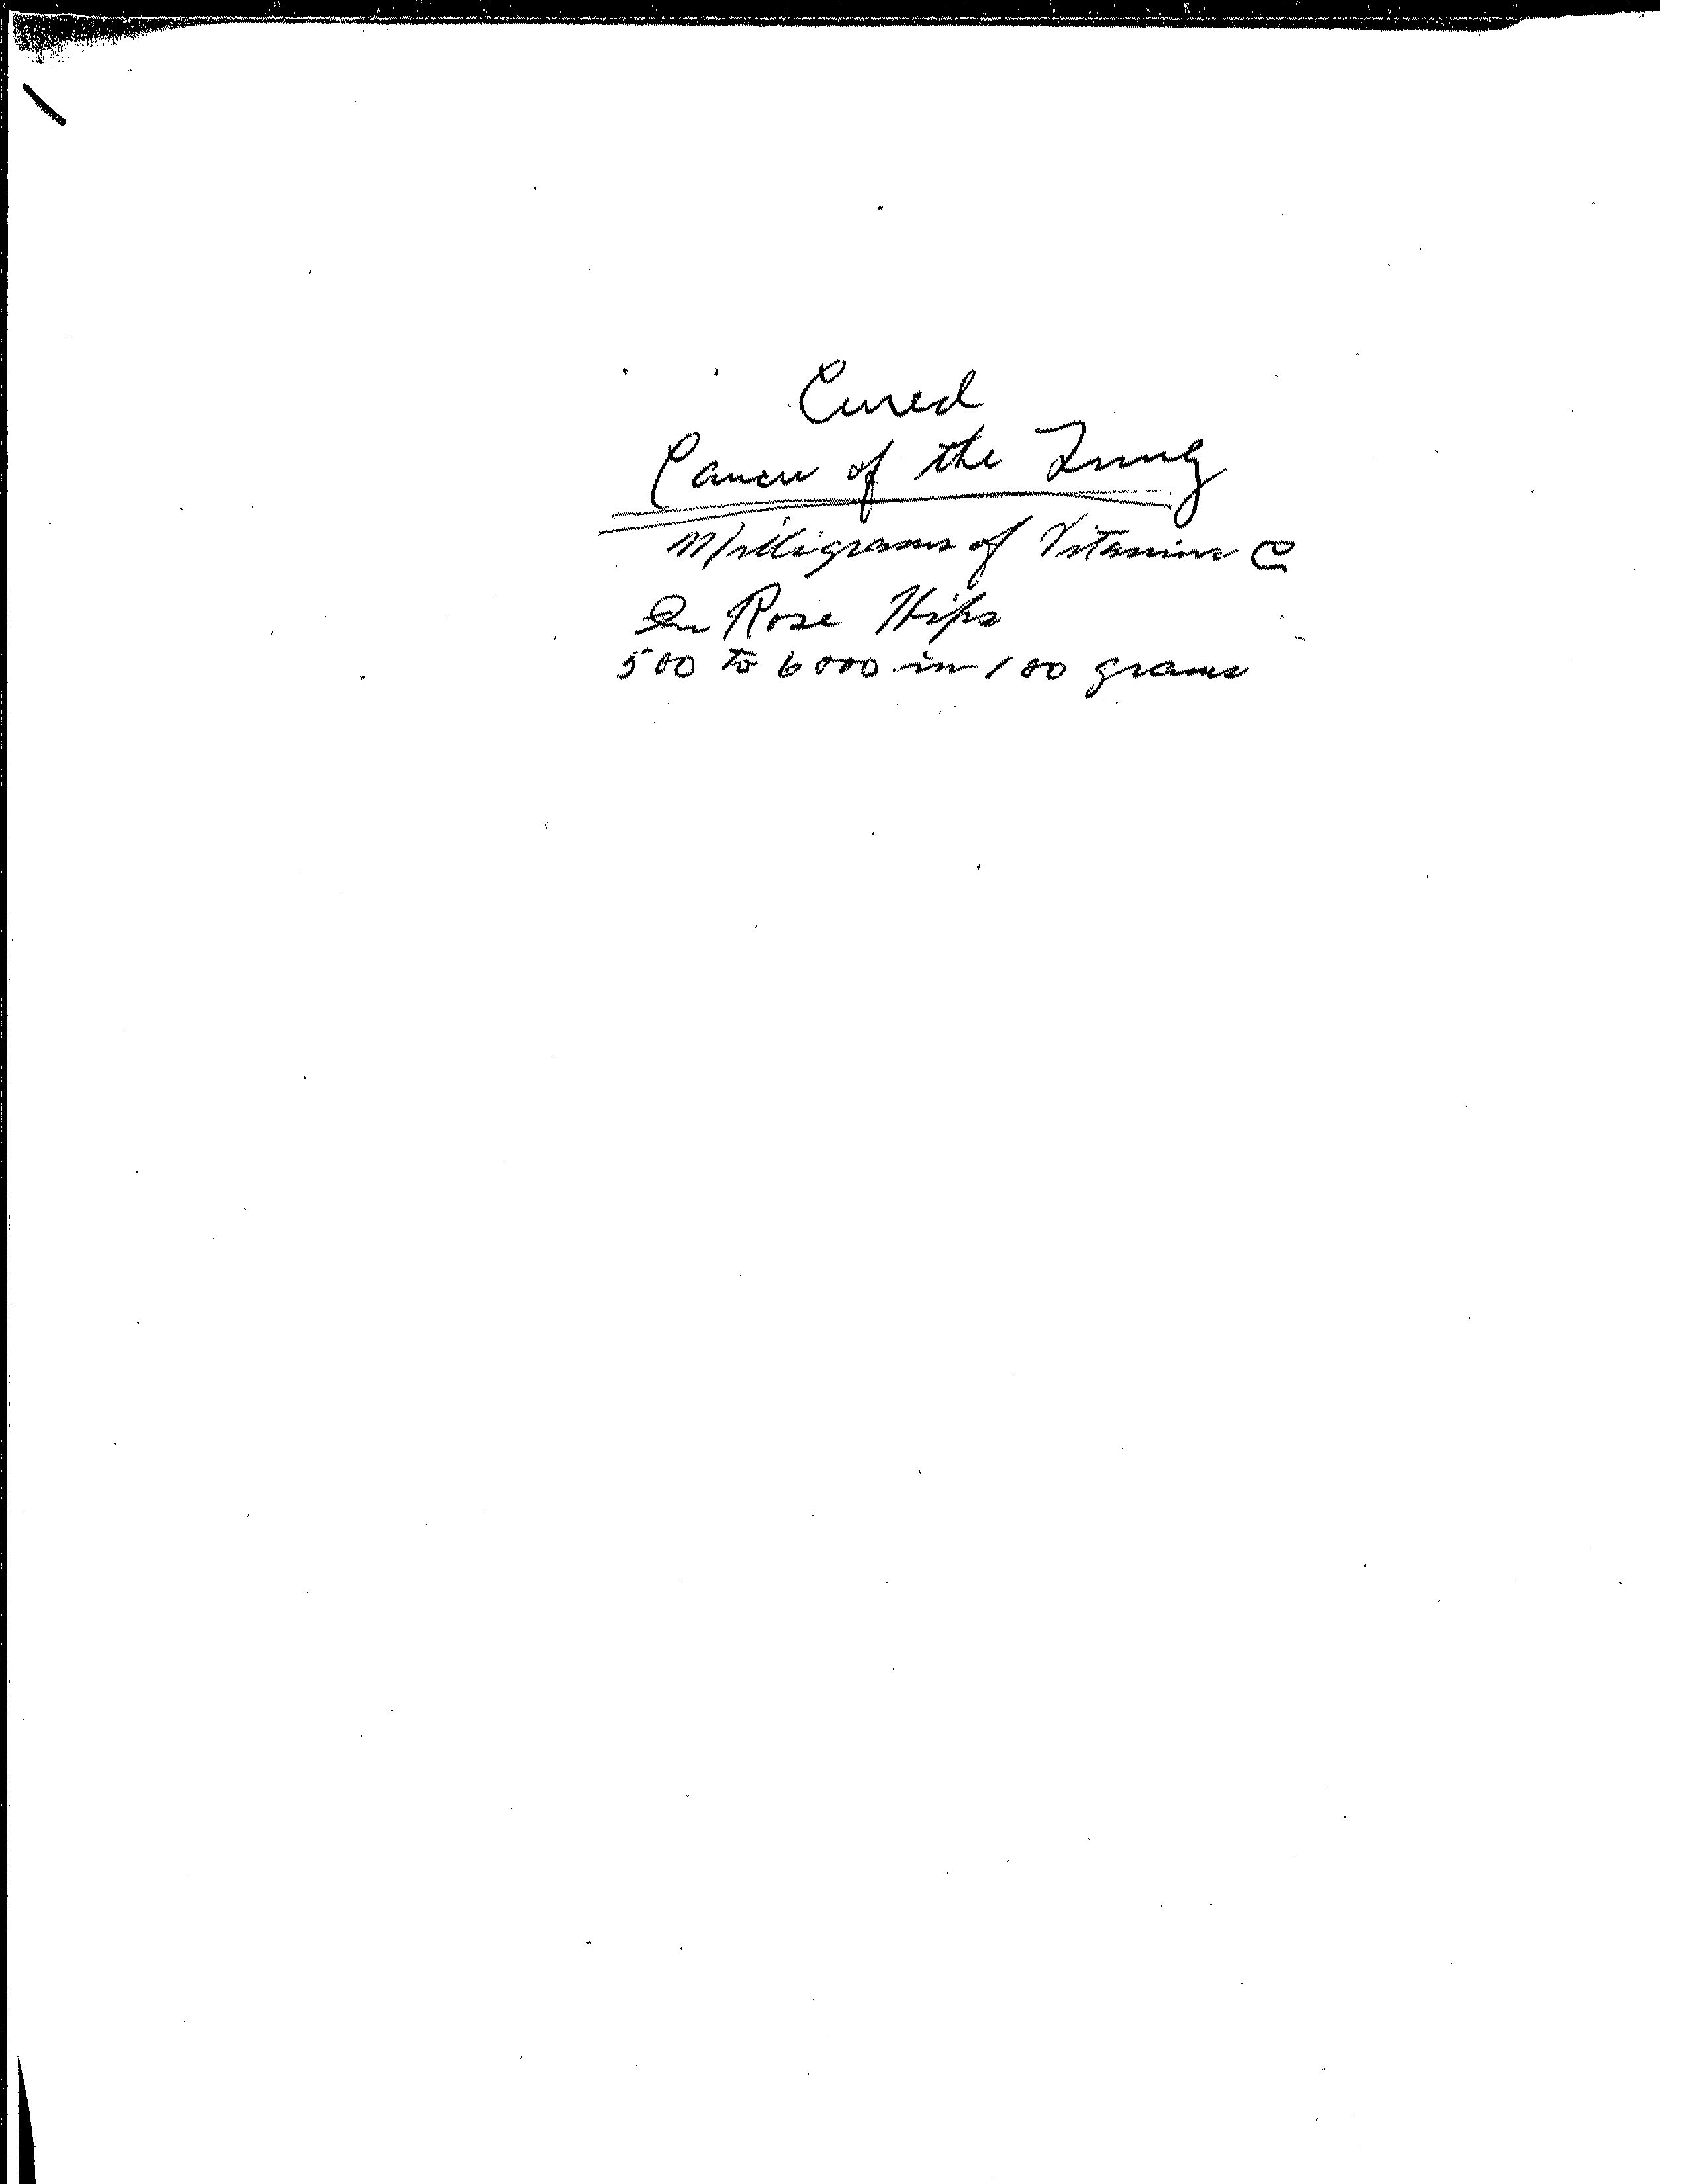 Cured
Cancer of the Lung
Milligrams of Vitamin C
In Rose Hips
500 to 6000 in 100 grams